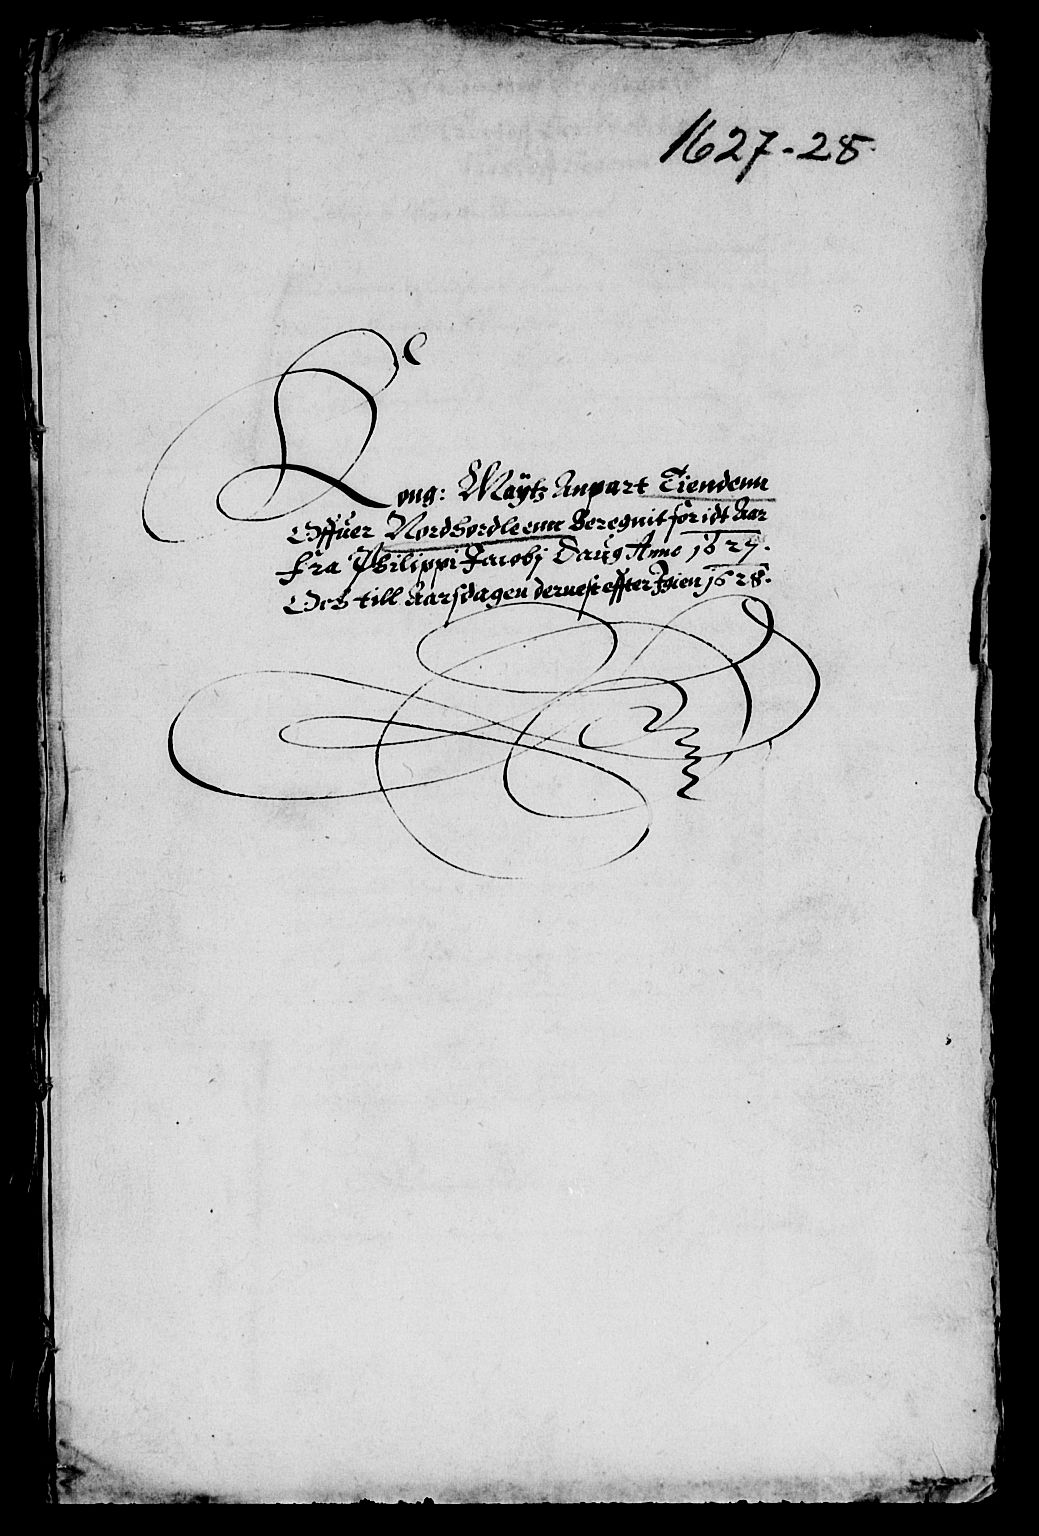 1627-28.
Kong: Maÿtz Anpart Tiendenn
Offuer Nordhordleenn Beregnit for idt Aar
fra Philippi Jacobj Daug Anno 1627.
Och till Aarsdagen dernest effter Igien 1628.